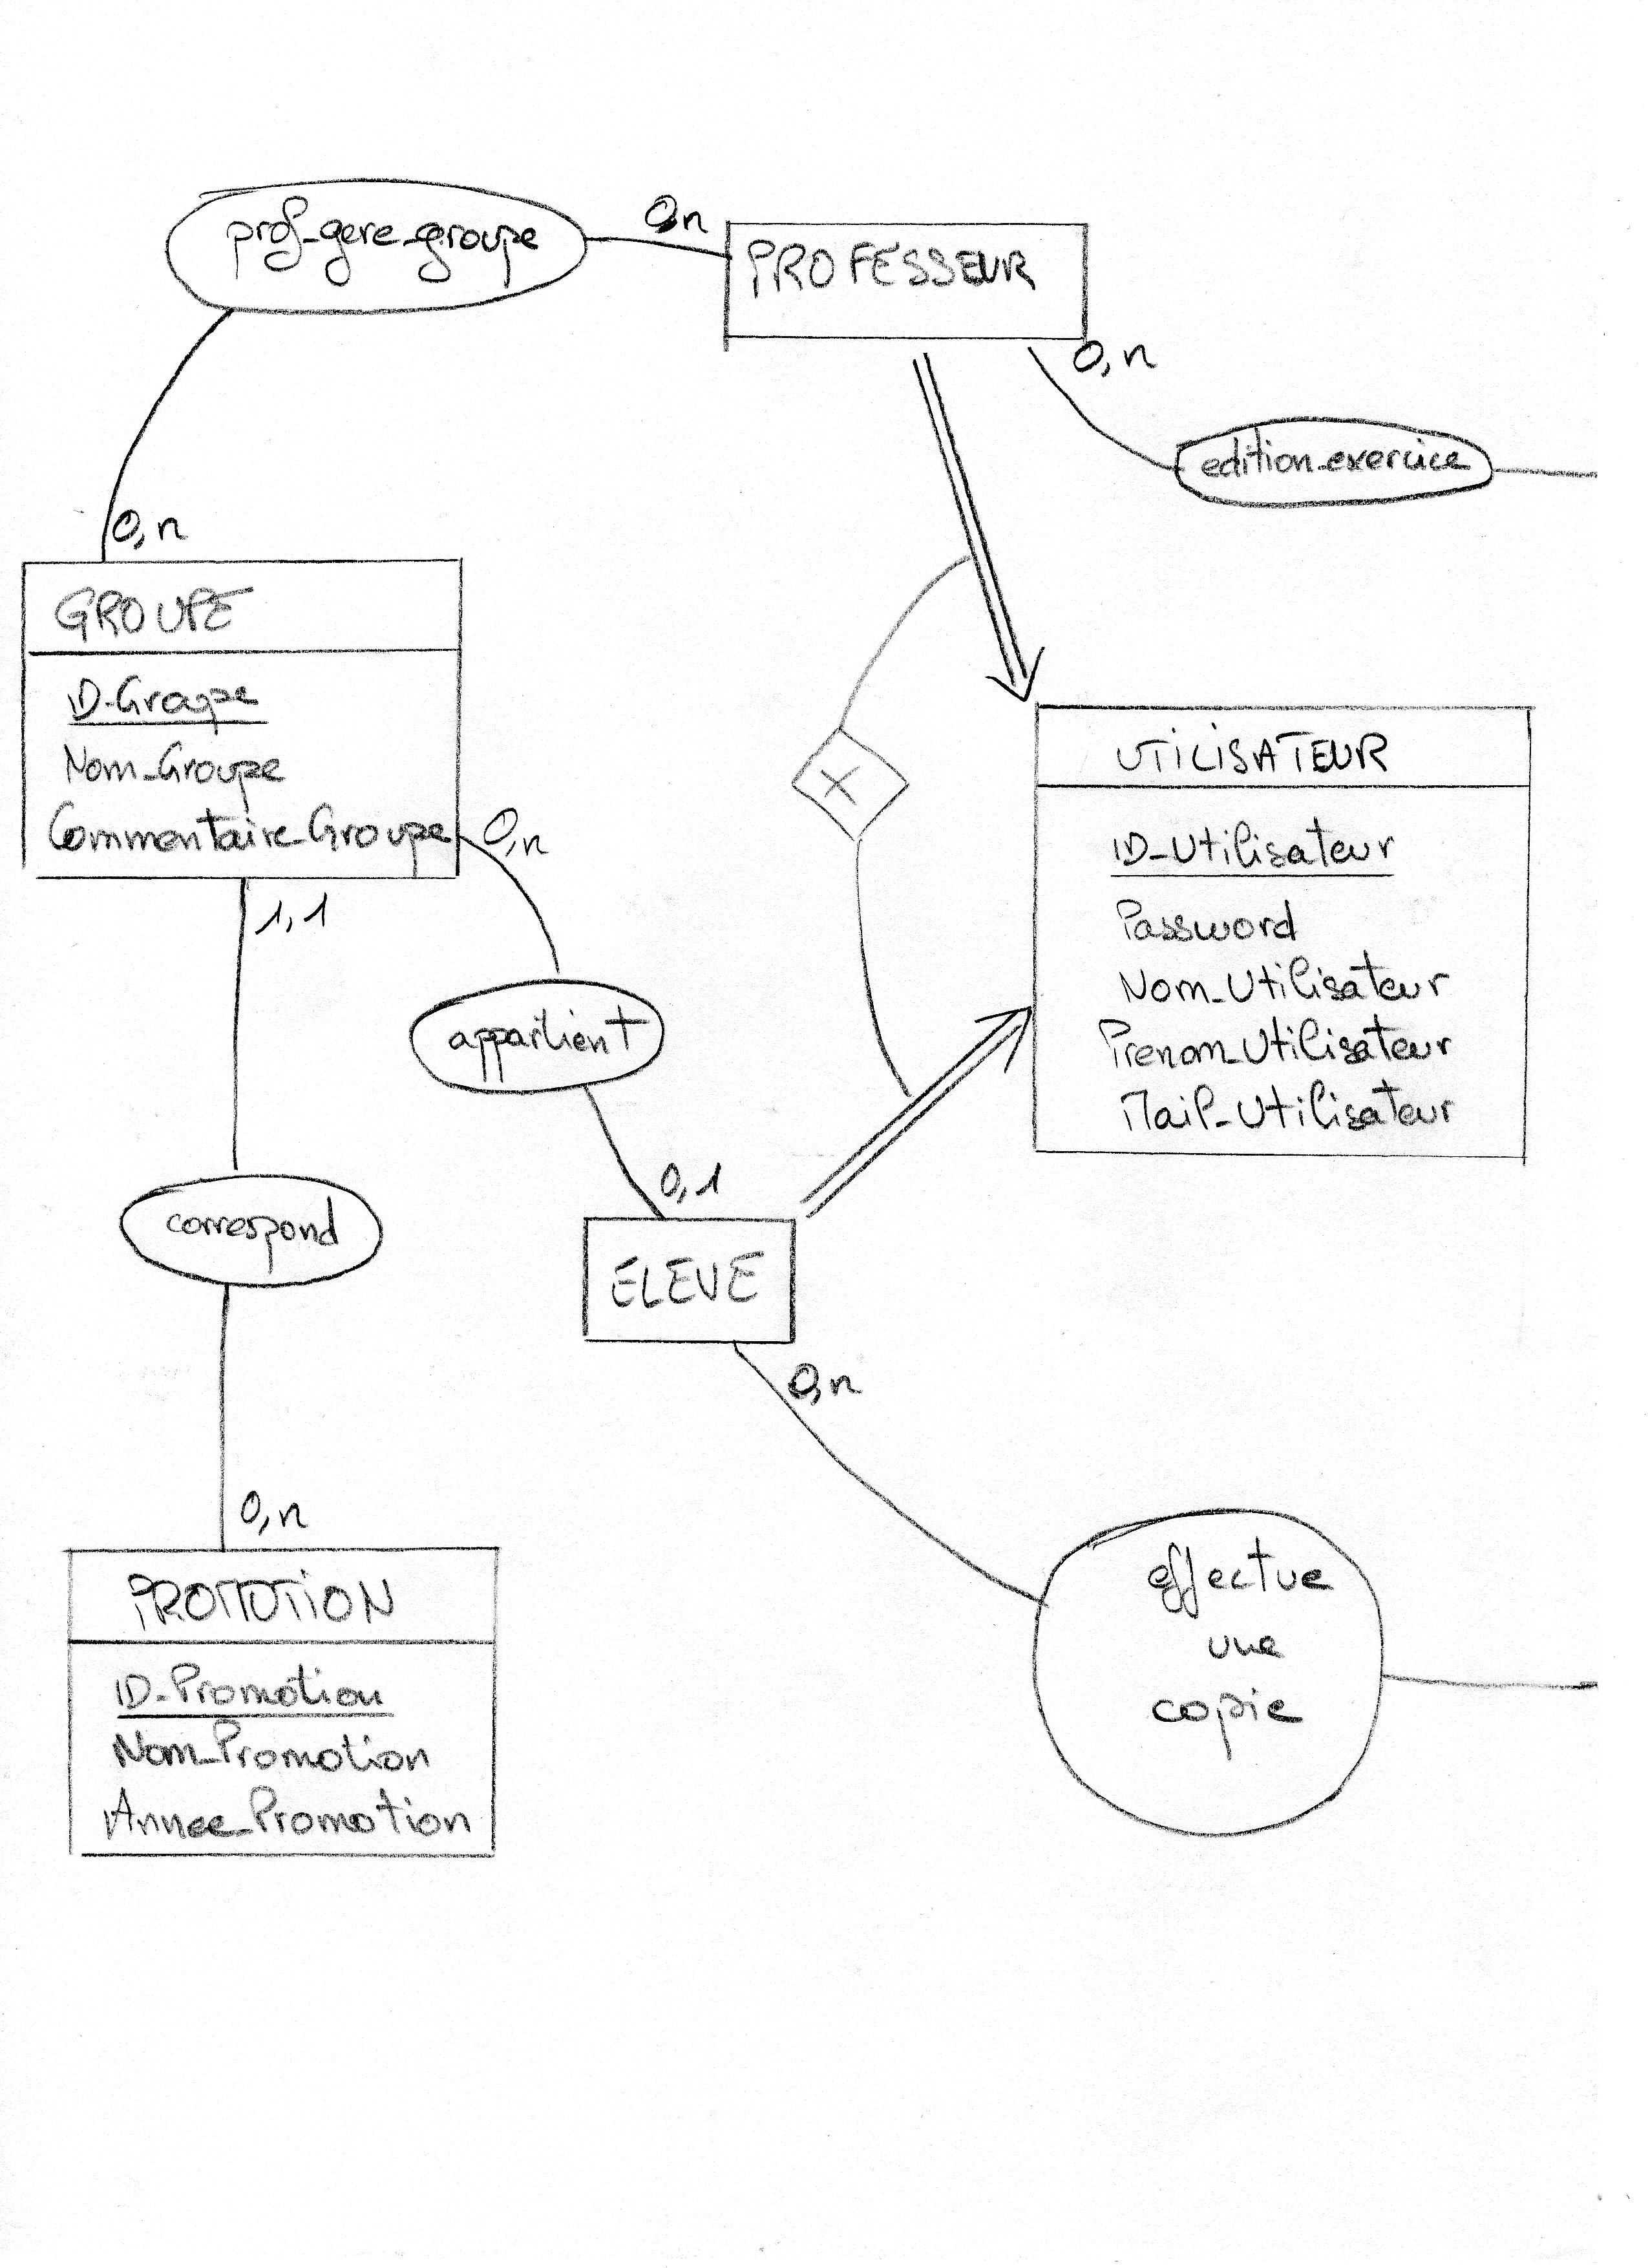 prof_gere_groupe
0,n
PROFESSEUR
0,n
edition_exercice
0,n
GROUPE
ID_Groupe
Nom_Groupe
Commentaire_Groupe
0,n
1,1
X
UTILISATEUR
ID_Utilisateur
Password
Nom_Utilisateur
Prenom_Utilisateur
Mail_Utilisateur
appartient
0,1
correspond
ELEVE
0,n
0,n
PROMOTION
ID_Promotion
Nom_Promotion
Annee_Promotion
effectue
une
copie